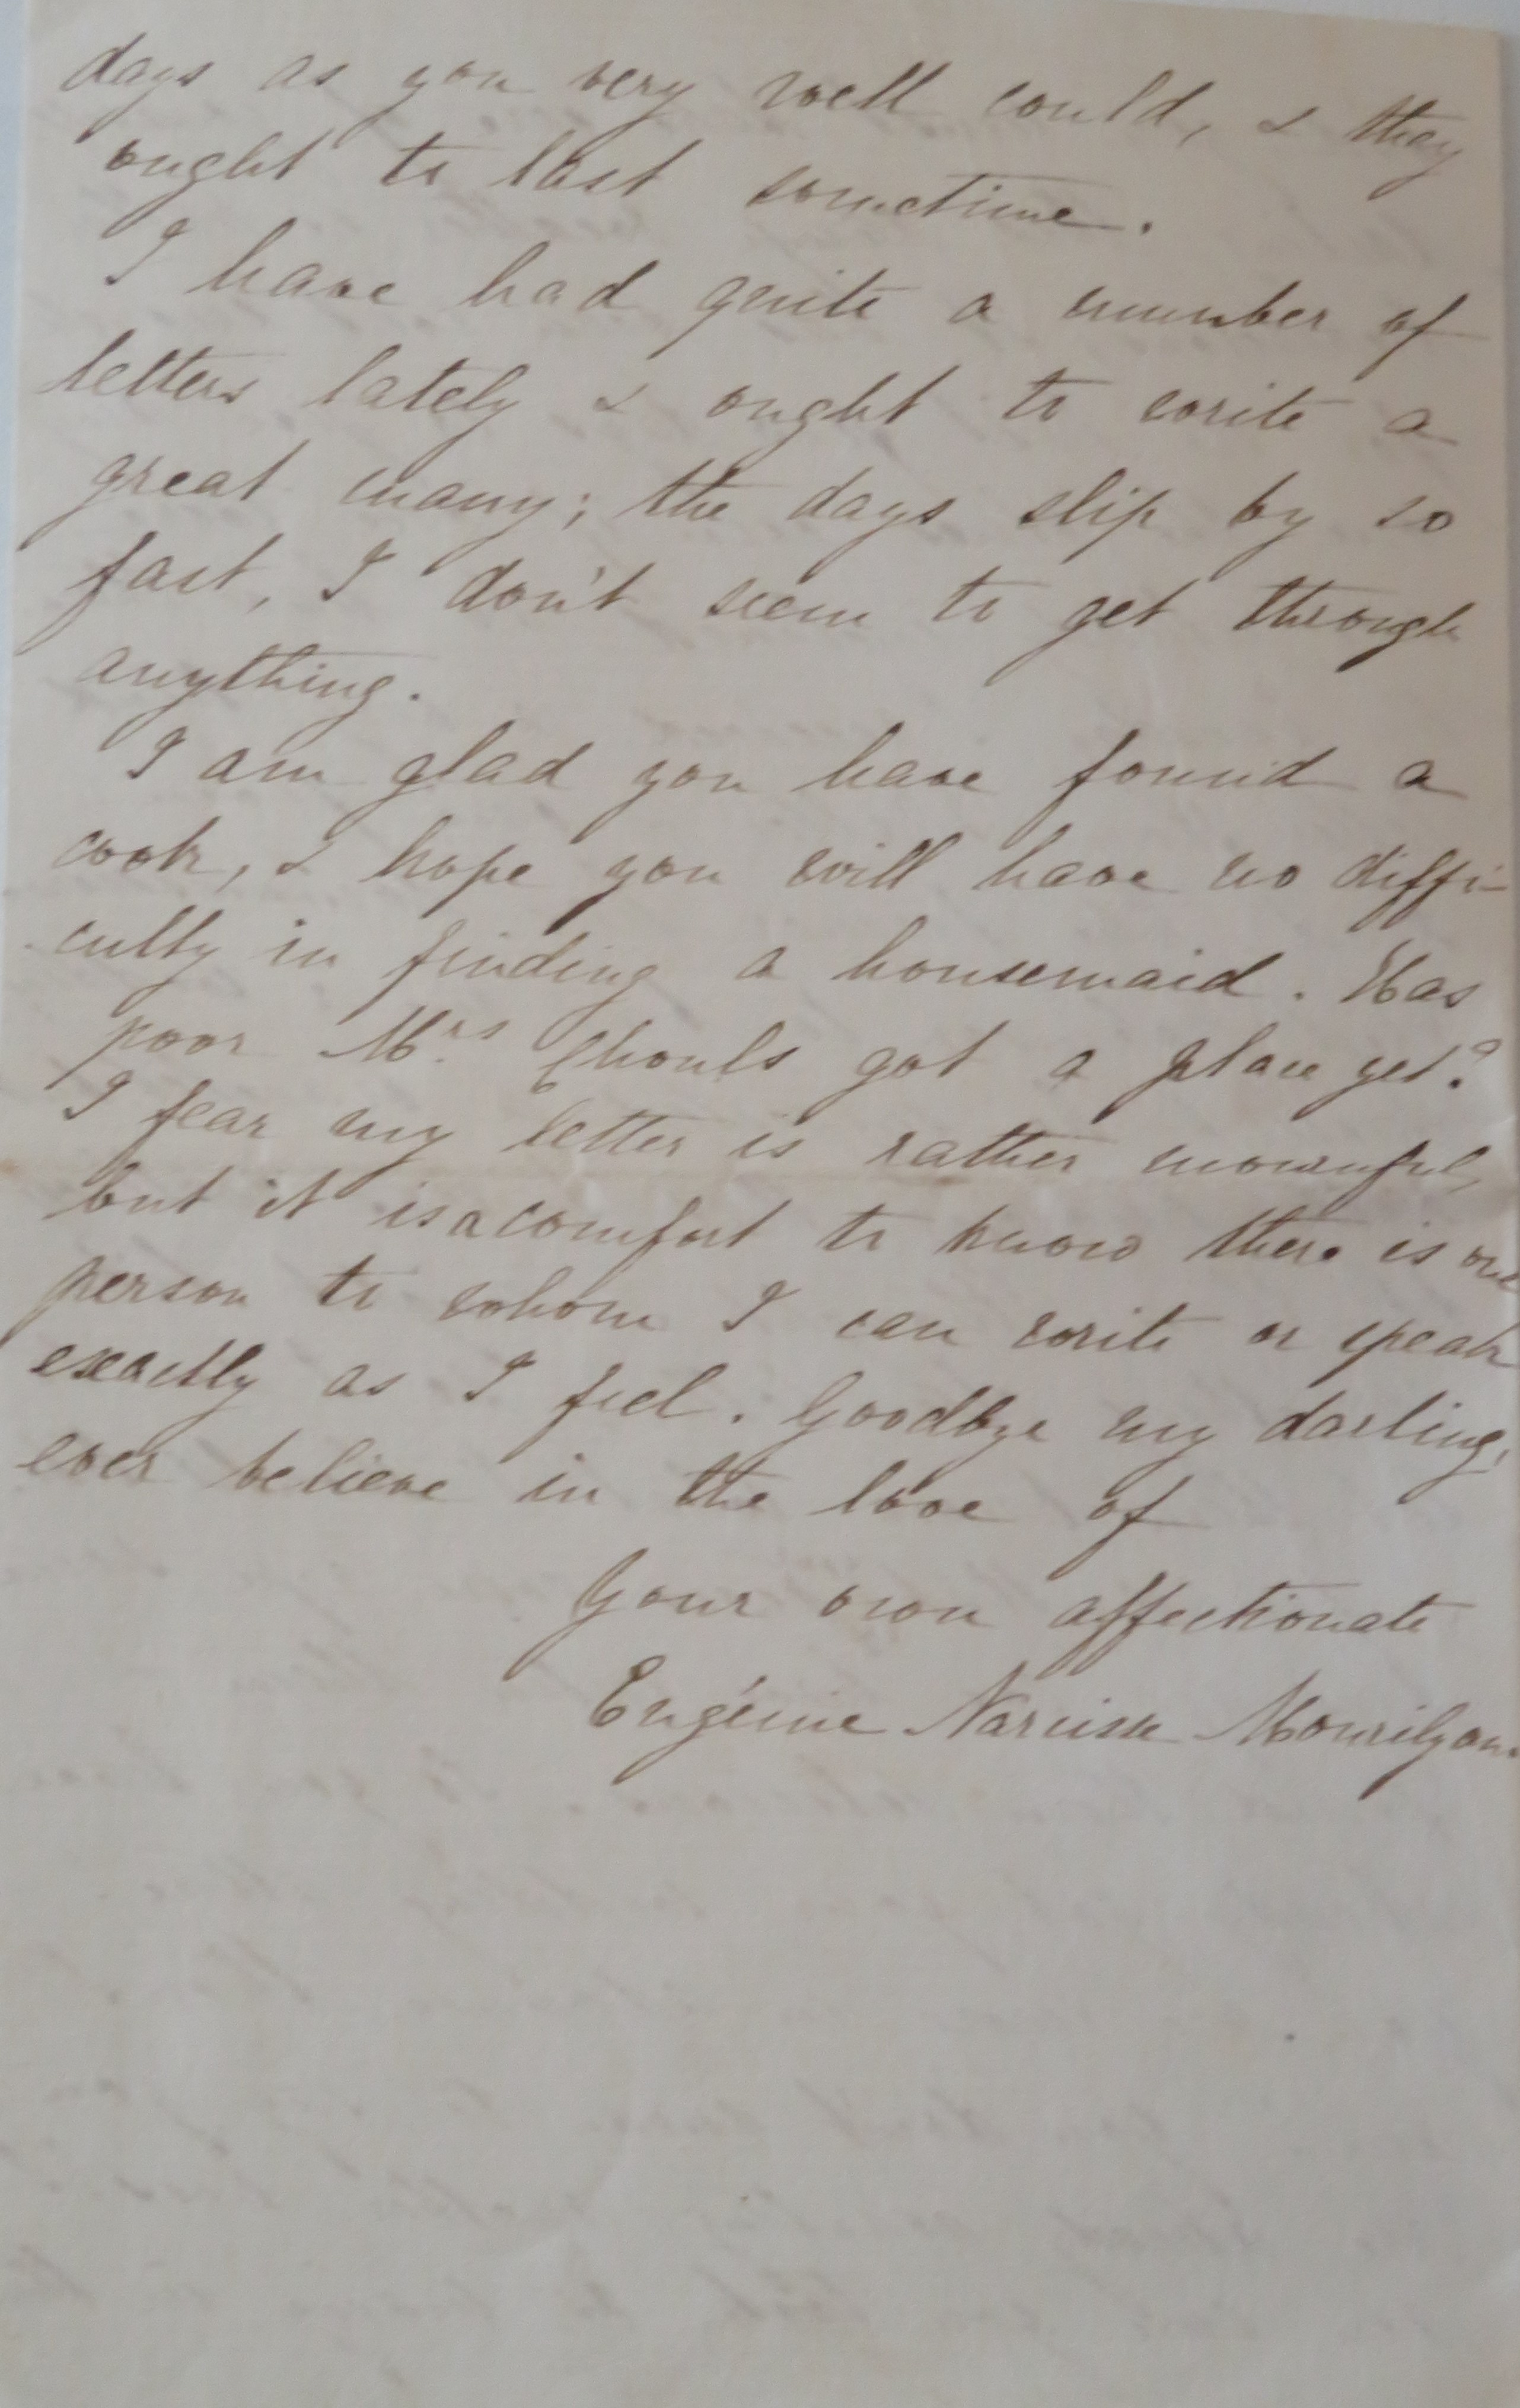 days as you very well could, & they
ought to last sometime.
I have had quite a number of
letters lately & ought to write a
great many; the days slip by so
fast, I don't seem to get through
anything.
I am glad you have found a
cook, & hope you will have no diffi-
culty in finding a housemaid. Has
poor Mrs. got a place yet?
I fear my letter is rather mournful,
but it is a comfort to know there is one
person to whom I can write or speak
exactly as I feel. Goodbye my darling,
ever believe in the love of
Your own affectionate
Eugénie Narcisse Mourilyan.